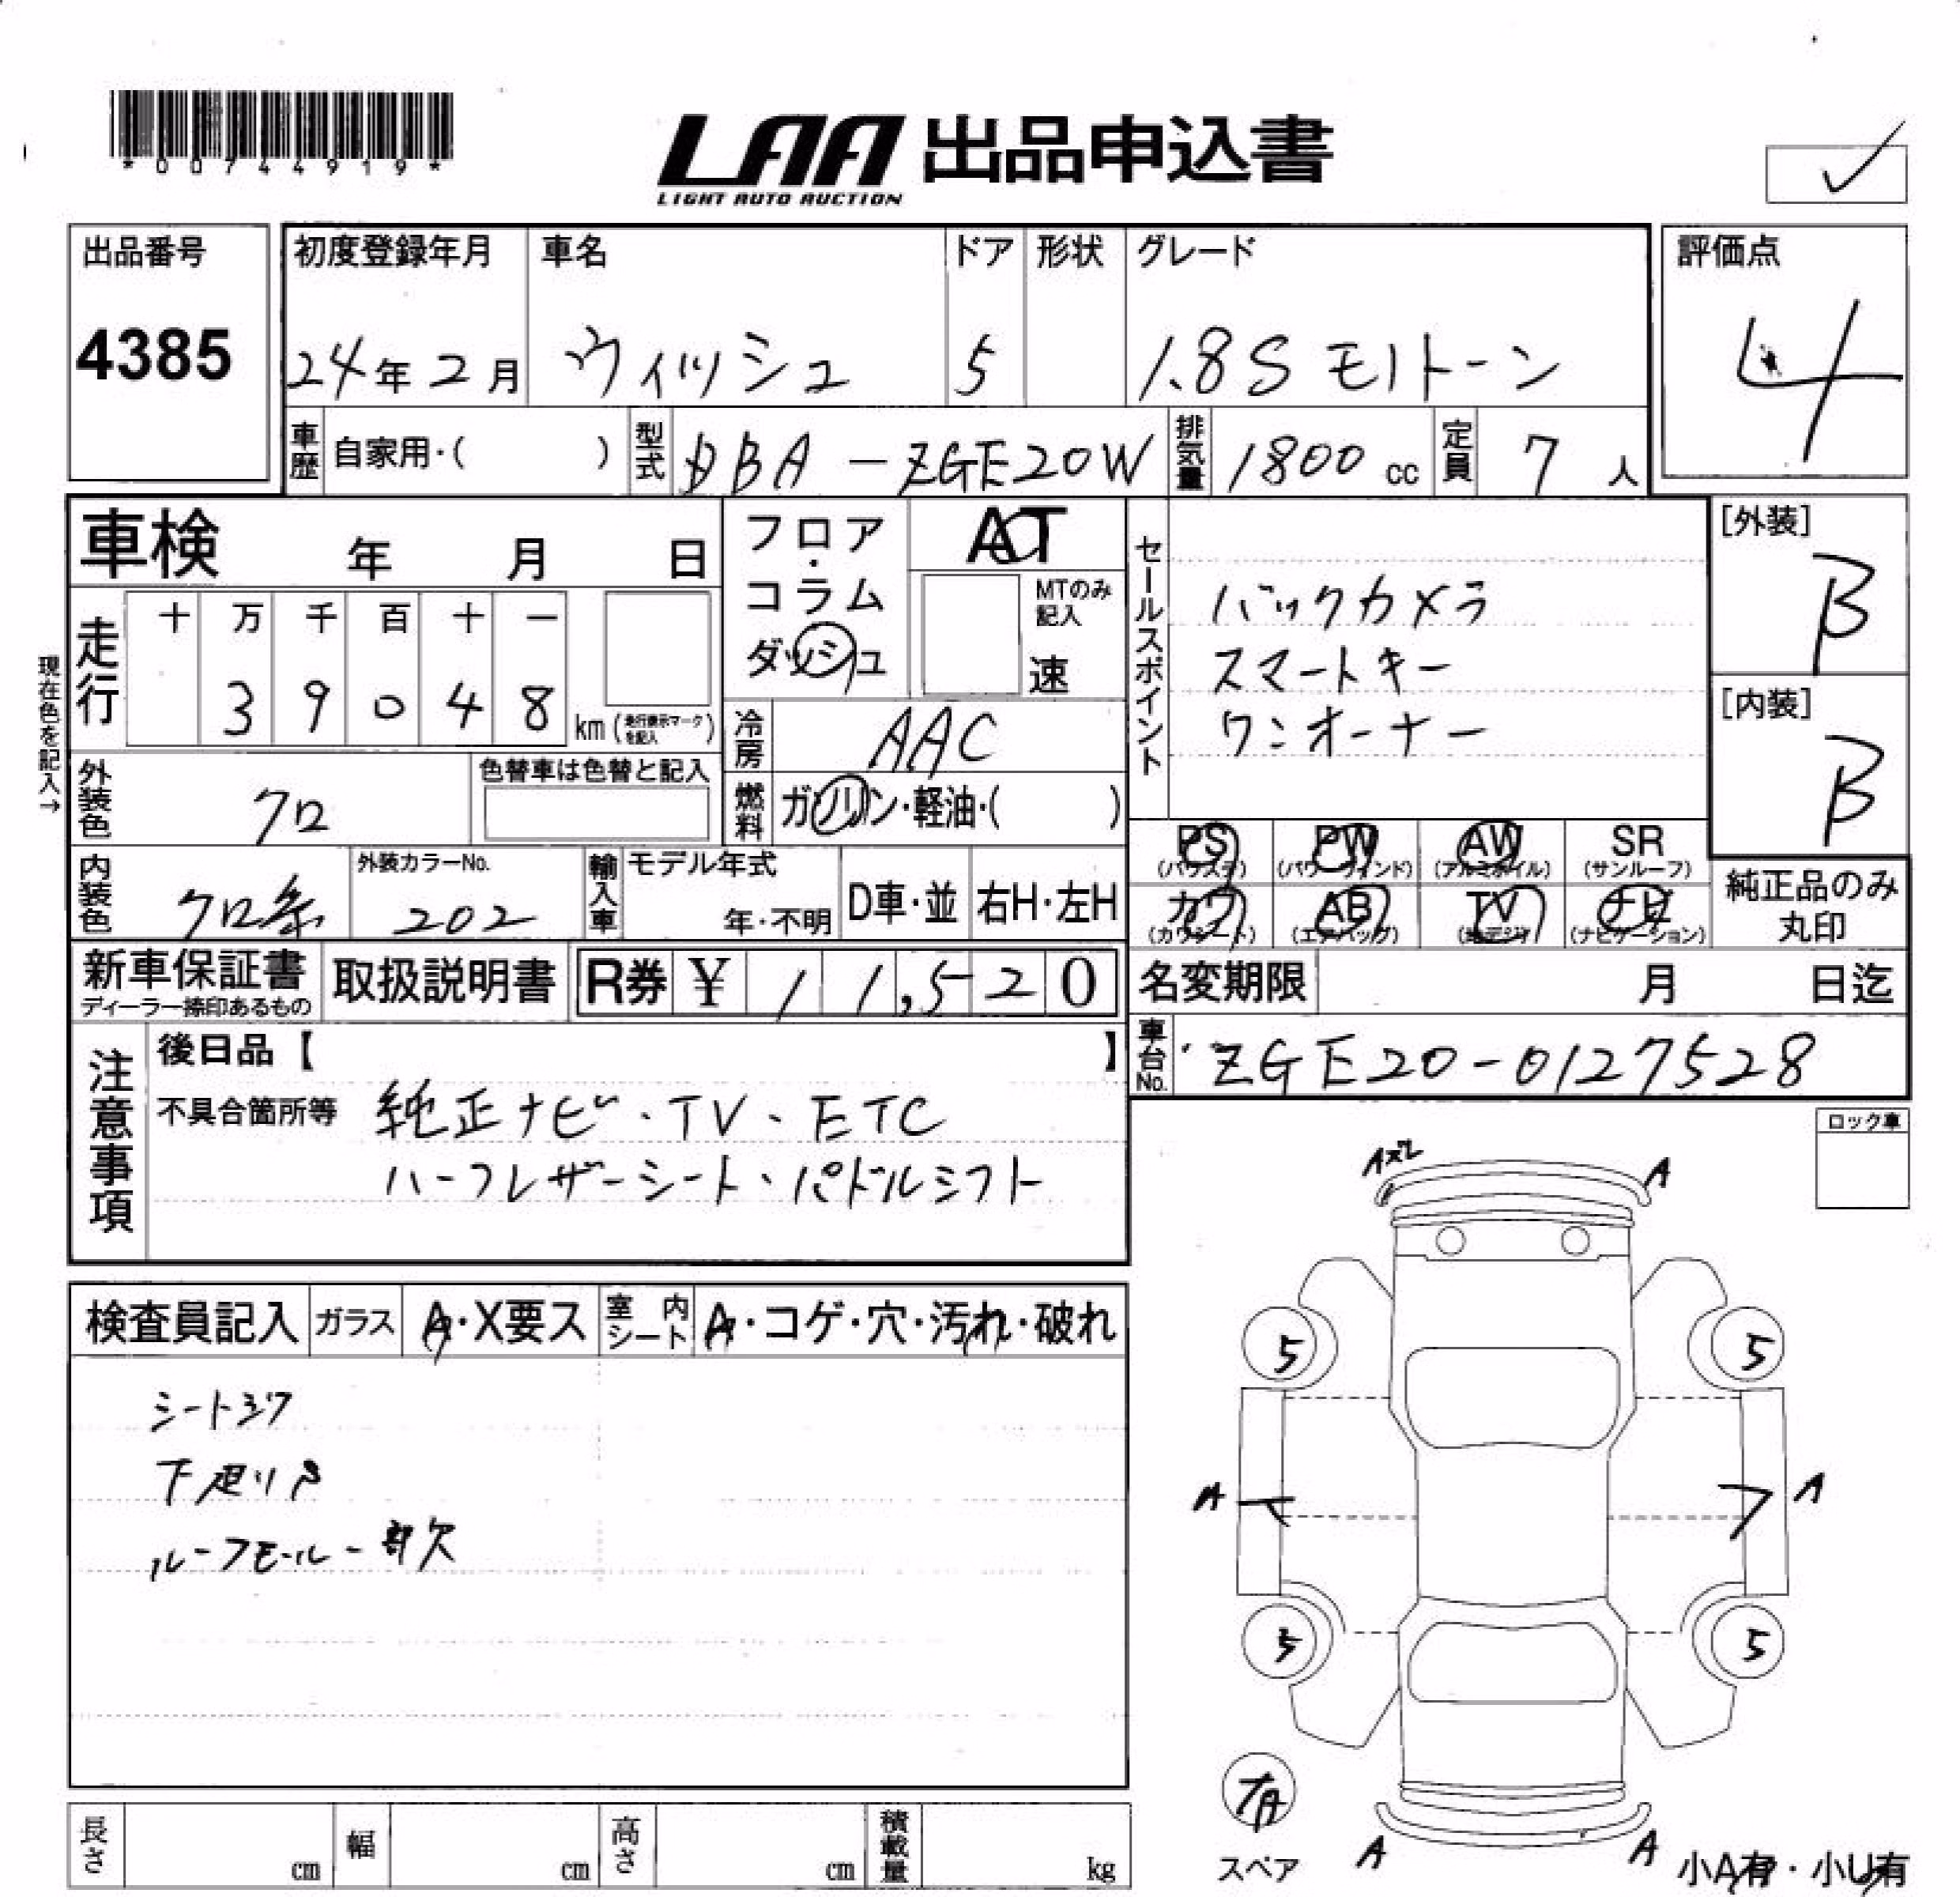 *00744919*
LAA 出品申込書
LIGHT AUTO AUCTION
出品番号
4385
初度登録年月
24年2月
車名
ウィッシュ
ドア
5
形状
グレード
1.8S モノトーン
評価点
4
車歴 自家用・( )
型式 DBA-ZGE20W
排気量 1800 cc
定員 7 人
車検 年 月 日
フロア・コラム ダッシュ
AT
MTのみ記入
速
セールスポイント
バックカメラ
スマートキー
ワンオーナー
[外装]
B
[内装]
B
現在色を記入→
走行 十 万 千 百 十 一
3 9 0 4 8 km (走行表示マークを記入)
冷房 AAC
燃料 ガソリン・軽油・( )
外装色 クロ
色替車は色替と記入
内装色 クロ系
外装カラーNo.
202
輸入車 モデル年式
年・不明
D車・並
右H・左H
PS (パワステ)
PW (パワーウィンド)
AW (アルミホイル)
SR (サンルーフ)
カワ (カワシート)
AB (エアバッグ)
TV (地デジ)
ナビ (ナビゲーション)
純正品のみ丸印
新車保証書
ディーラー捺印あるもの
取扱説明書
R券 ¥ 11,520
名変期限 月 日迄
車台No. ZGE20-0127528
注意事項
後日品【 】
不具合箇所等 純正ナビ・TV・ETC
ハーフレザーシート・パドルシフト
ロック車
検査員記入 ガラス A・X要ス 室内シート A・コゲ・穴・汚れ・破れ
シートシワ
下廻りS
ルーフモール一部欠
A A
5 5
A A
5 5
有
スペア
A A
小A有・小U有
長さ cm 幅 cm 高さ cm 積載量 kg